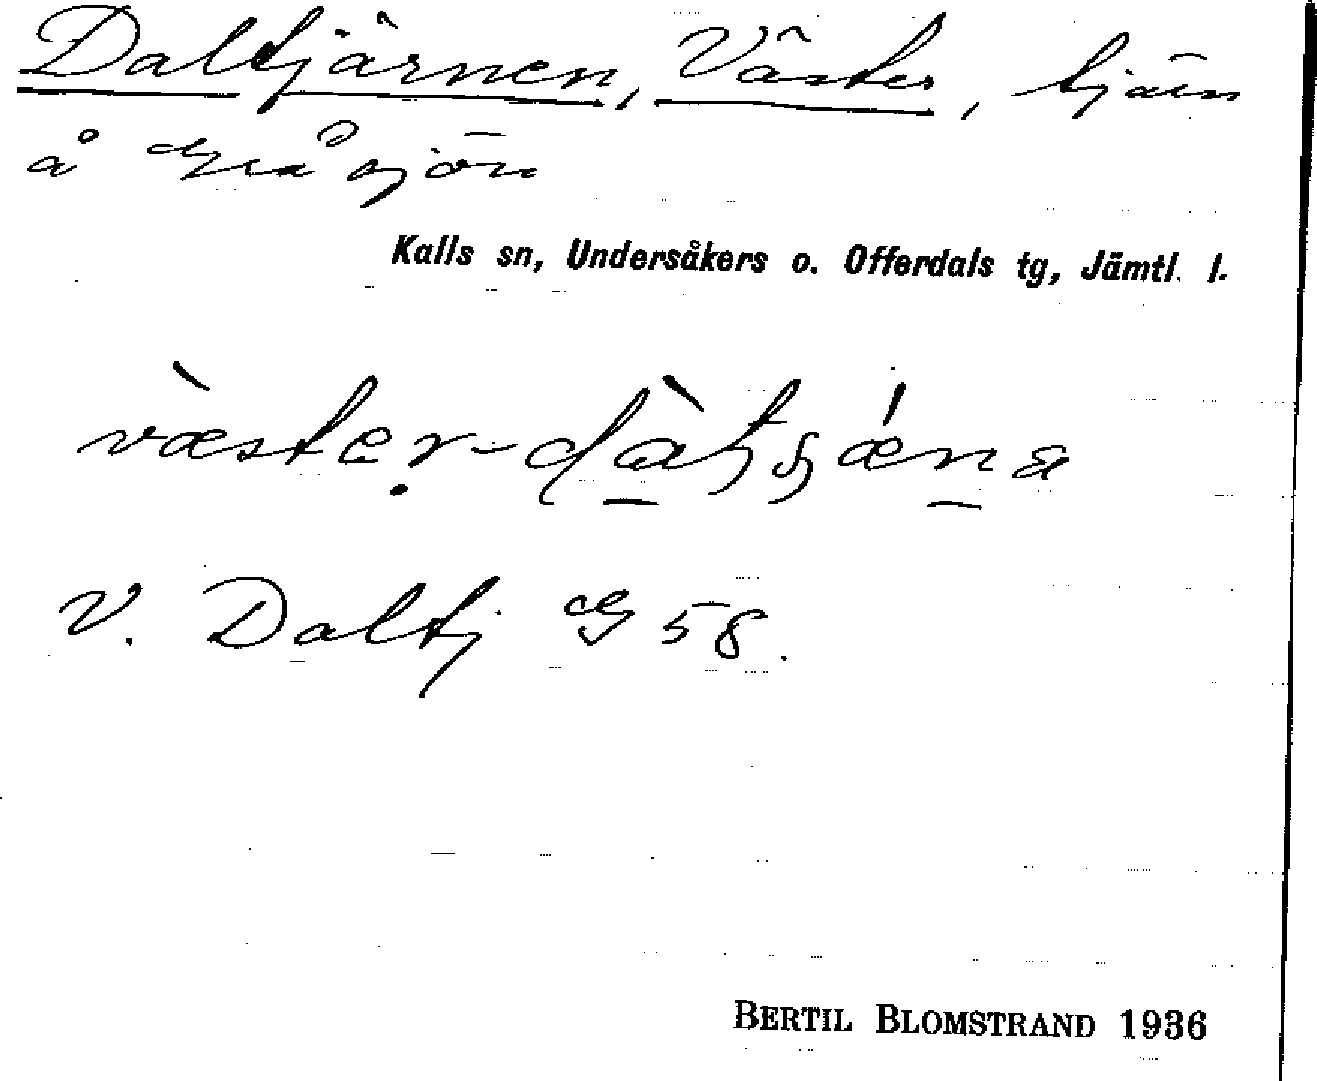 Daltjärnen, Väster, tjärn
å Gråsjön
Kalls sn, Undersåkers o. Offerdals tg, Jämtl. l.
V. Daltj G 58.
BERTIL BLOMSTRAND 1936